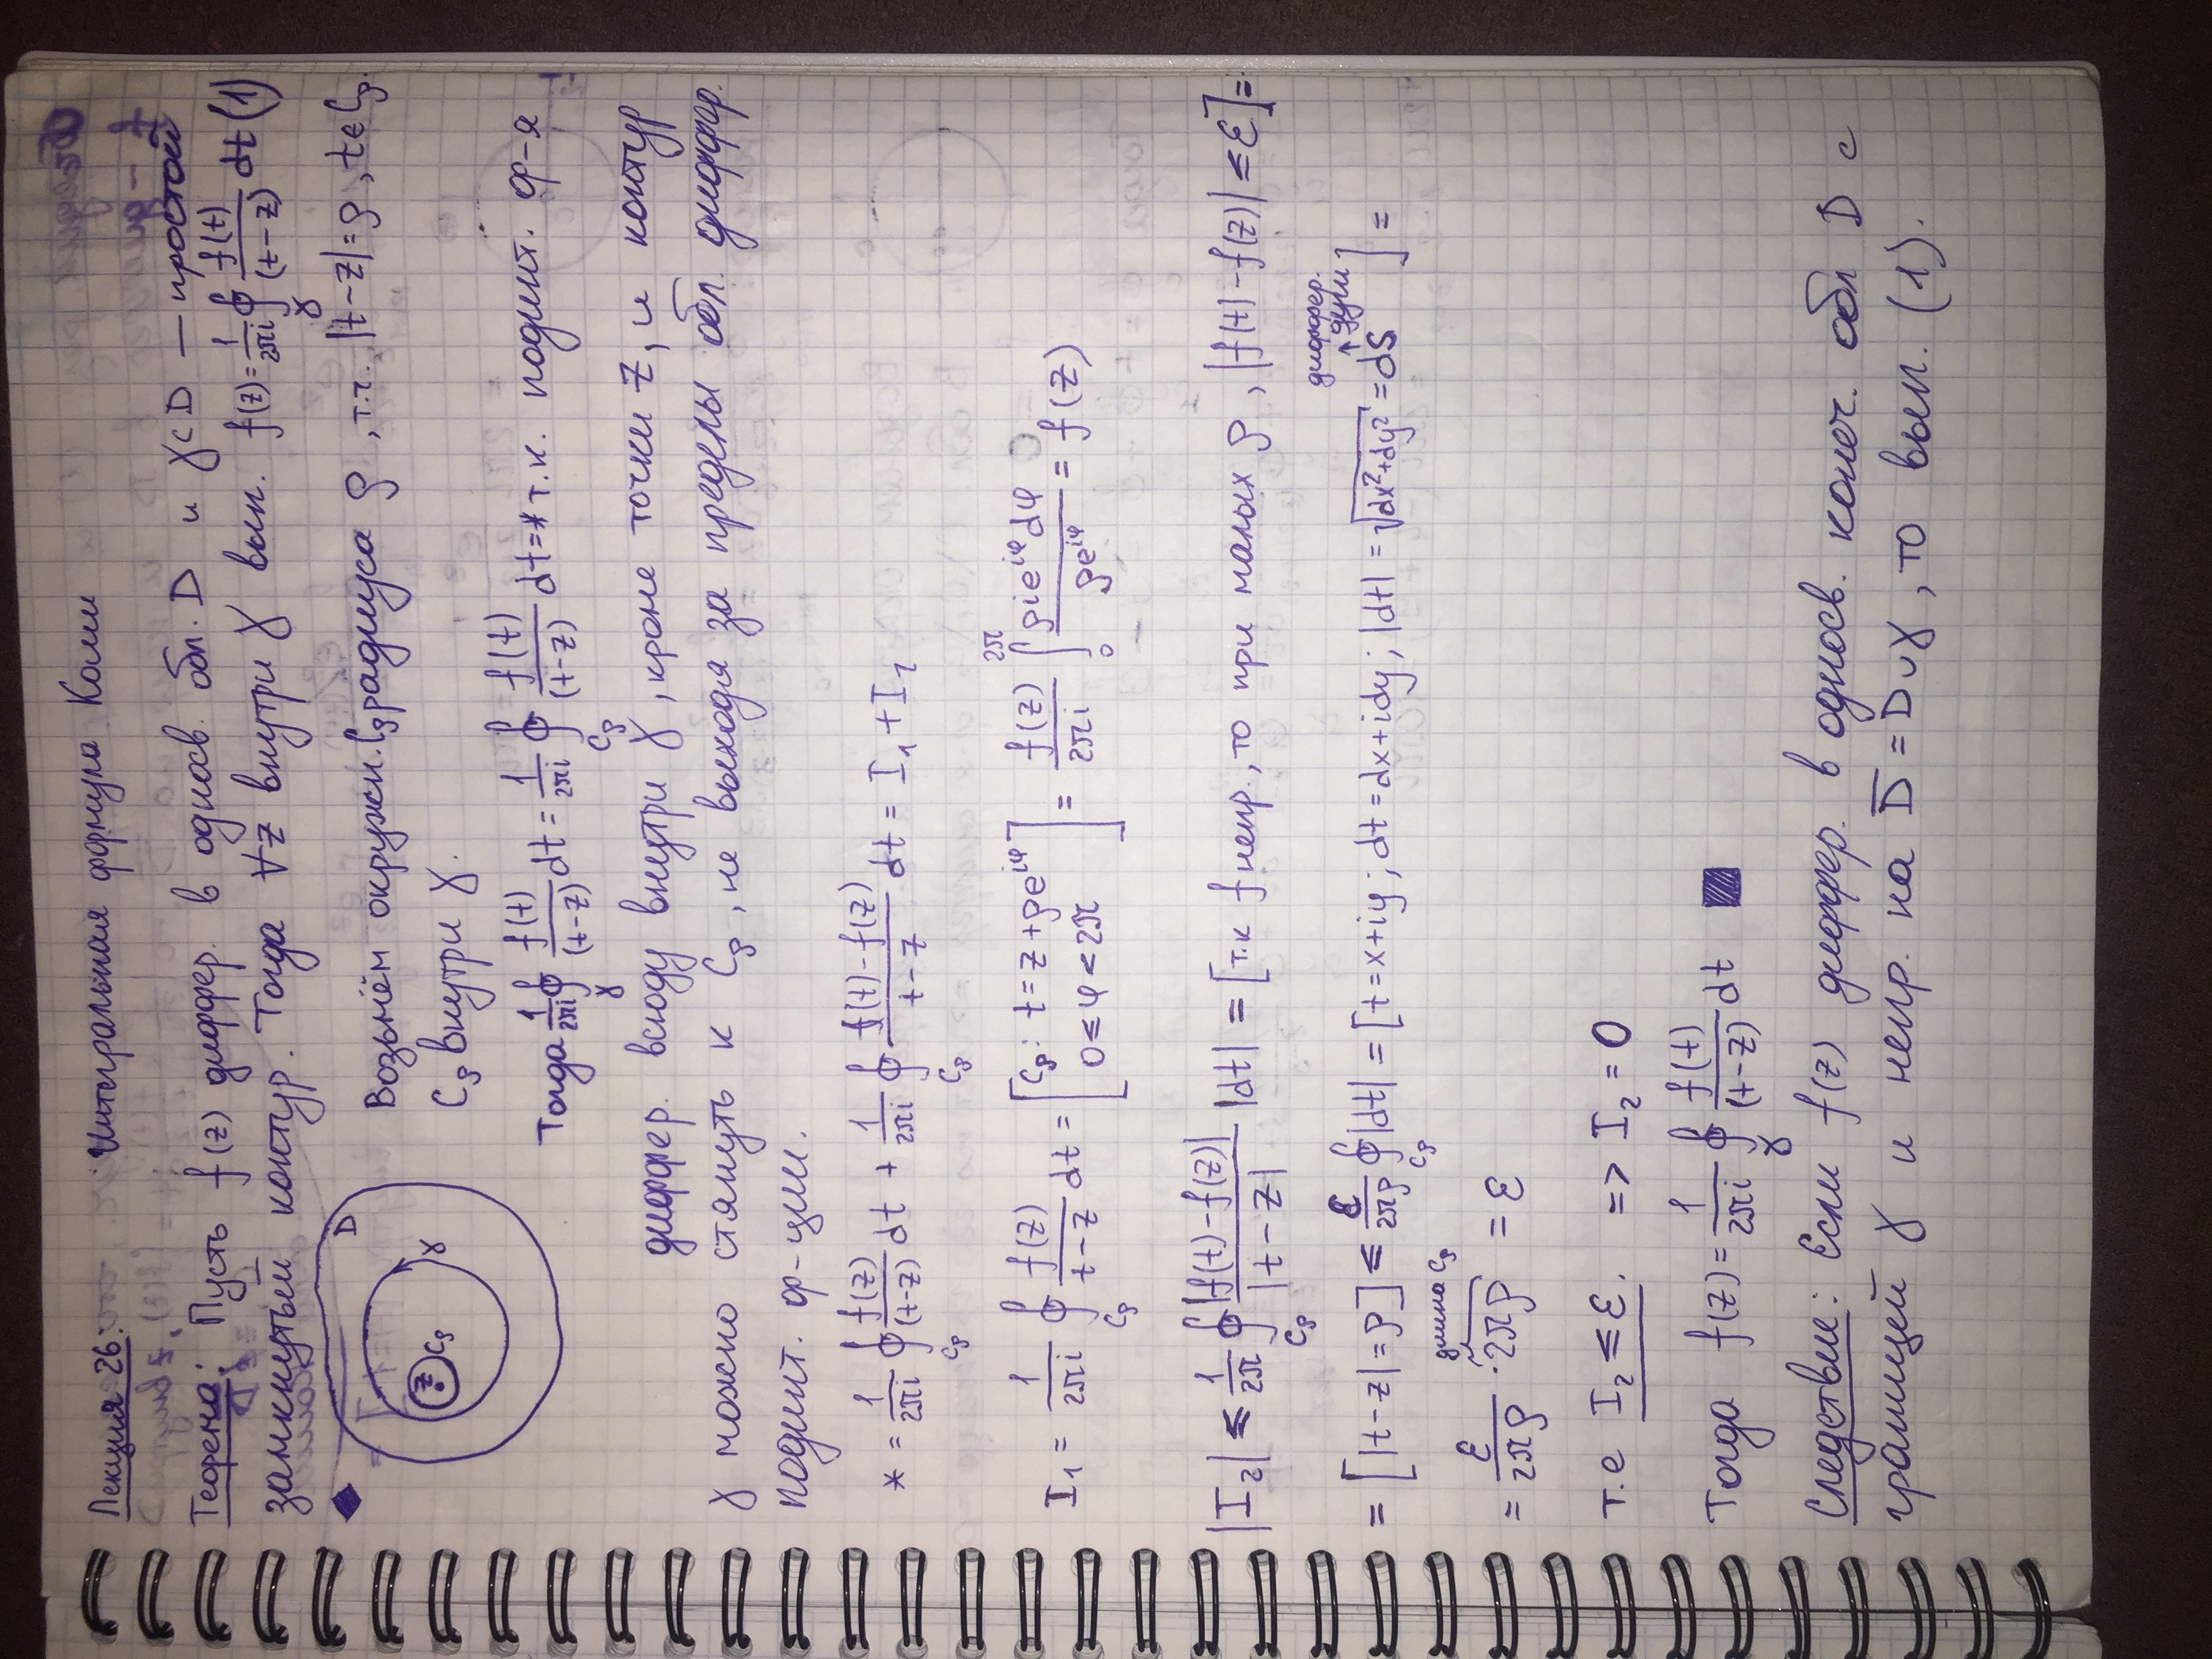 Лекция 26: Интегральная формула Коши
Теорема: Пусть f(z) диффер. в односв. обл. D и γ⊂D — простой
замкнутый контур. Тогда ∀z внутри γ вып. f(z)=1/(2πi) ∮_γ f(t)/(t-z) dt (1)
D
z C_ρ γ
Возьмём окружн. C_ρ радиуса ρ, т.ч. |t-z|=ρ, t∈C_ρ.
C_ρ внутри γ.
Тогда 1/(2πi) ∮_γ f(t)/(t-z) dt = 1/(2πi) ∮_{C_ρ} f(t)/(t-z) dt = * т.к. подинт. ф-я
диффер. всюду внутри γ, кроме точки z, и контур
γ можно стянуть к C_ρ, не выходя за пределы обл. диффер.
подинт. ф-ции.
* = 1/(2πi) ∮_{C_ρ} f(z)/(t-z) dt + 1/(2πi) ∮_{C_ρ} (f(t)-f(z))/(t-z) dt = I₁ + I₂
I₁ = 1/(2πi) ∮_{C_ρ} f(z)/(t-z) dt = [C_ρ: t = z + ρe^{iφ} 0 ≤ φ < 2π] = f(z)/(2πi) ∫_0^{2π} ρie^{iφ}dφ/(ρe^{iφ}) = f(z)
|I₂| ≤ 1/(2π) ∮_{C_ρ} |f(t)-f(z)|/|t-z| |dt| = [т.к f непр., то при малых ρ, |f(t)-f(z)| ≤ ε] =
диффер.
↑ дуги
= [|t-z|=ρ] ≤ ε/(2πρ) ∮_{C_ρ} |dt| = [t=x+iy; dt=dx+idy; |dt| = √(dx²+dy²) = ds] =
длина C_ρ
= ε/(2πρ) · 2πρ = ε
т.е I₂ ≤ ε. => I₂ = 0
Тогда f(z) = 1/(2πi) ∮_γ f(t)/(t-z) dt
Следствие: Если f(z) диффер. в односв. конеч. обл D с
границей γ и непр. на D̅ = D∪γ, то вып. (1).